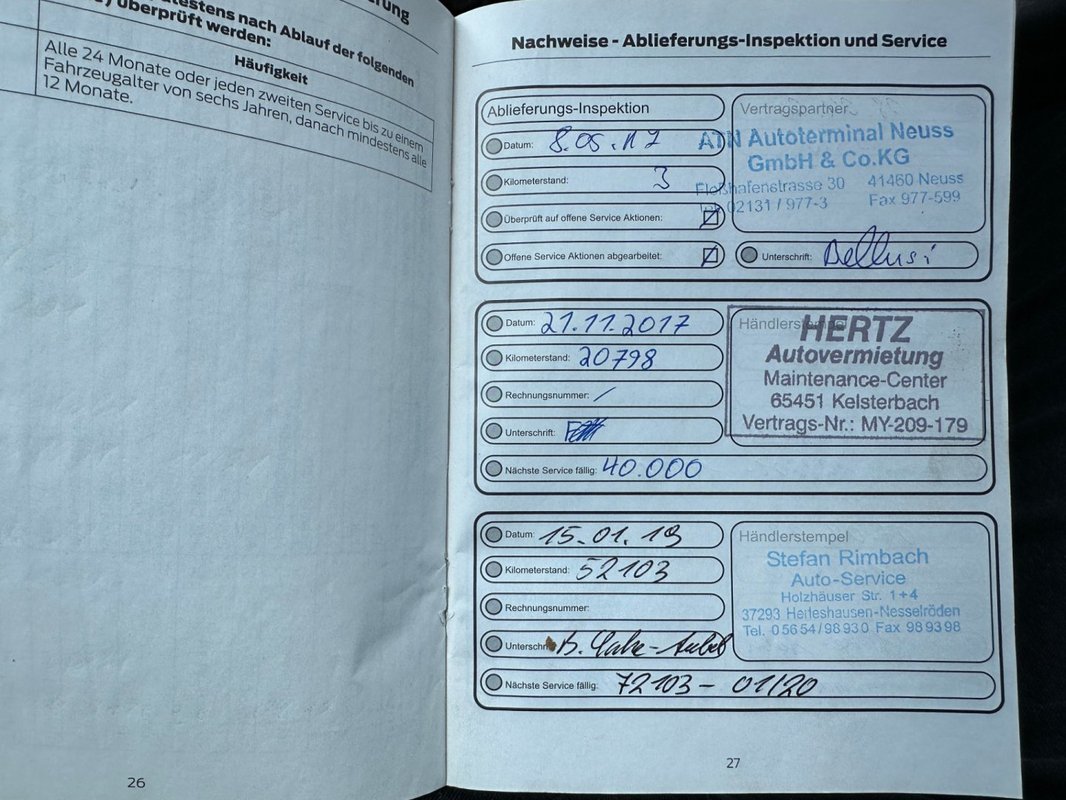 rung
testens nach Ablauf der folgenden
) überprüft werden:
Häufigkeit
Alle 24 Monate oder jeden zweiten Service bis zu einem
Fahrzeugalter von sechs Jahren, danach mindestens alle
12 Monate.
26
Nachweise - Ablieferungs-Inspektion und Service
Ablieferungs-Inspektion
Vertragspartner
Datum: 8.05.17
ATN Autoterminal Neuss
GmbH & Co.KG
Kilometerstand: 3
Floßhafenstrasse 30 41460 Neuss
02131 / 977-3 Fax 977-599
Überprüft auf offene Service Aktionen:
Offene Service Aktionen abgearbeitet:
Unterschrift: Bellusi
Datum: 21.11.2017
Kilometerstand: 20798
Rechnungsnummer: /
Unterschrift:
Nächste Service fällig: 40.000
HERTZ
Autovermietung
Maintenance-Center
65451 Kelsterbach
Vertrags-Nr.: MY-209-179
Datum: 15.01.19
Kilometerstand: 52103
Rechnungsnummer:
Unterschrift
Nächste Service fällig: 72103 - 01/20
Händlerstempel
Stefan Rimbach
Auto-Service
Holzhäuser Str. 1+4
37293 Herleshausen-Nesselröden
Tel. 05654/98930 Fax 989398
27